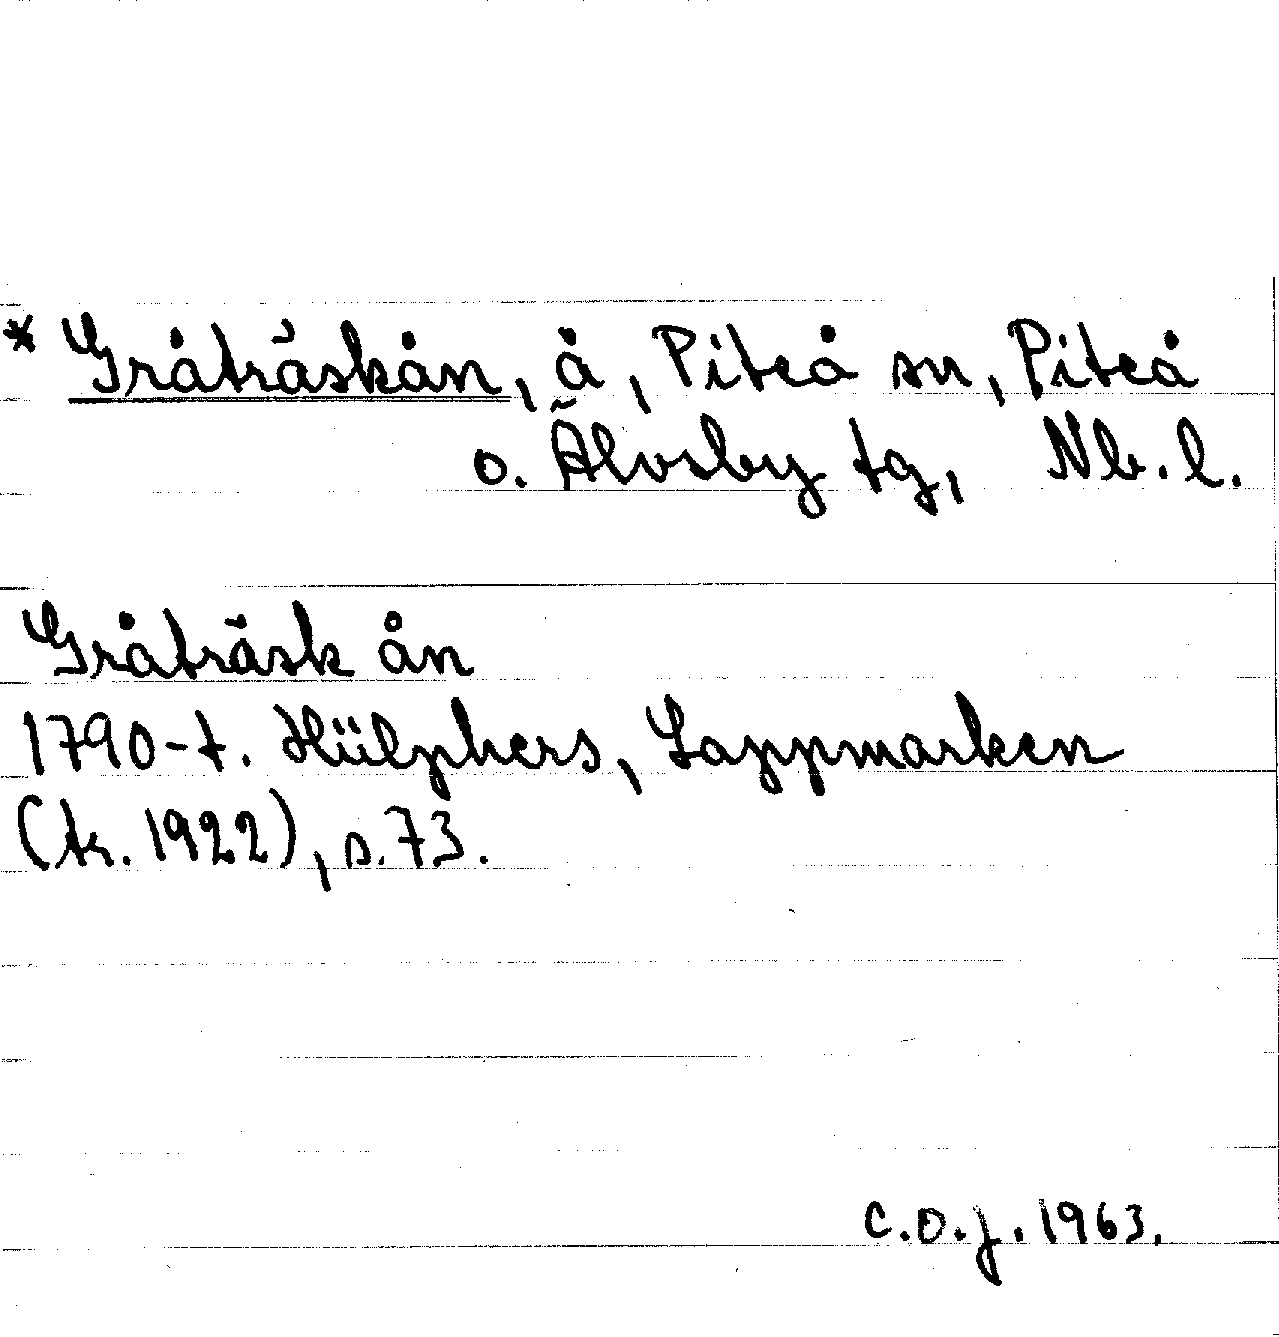 * Gråträskån, å, Piteå sn, Piteå
o. Älvsby tg, Nb. l.
Gråträsk ån
1790-t. Hülphers, Lappmarken
(tr. 1922), s. 73.
C.O.J. 1963.